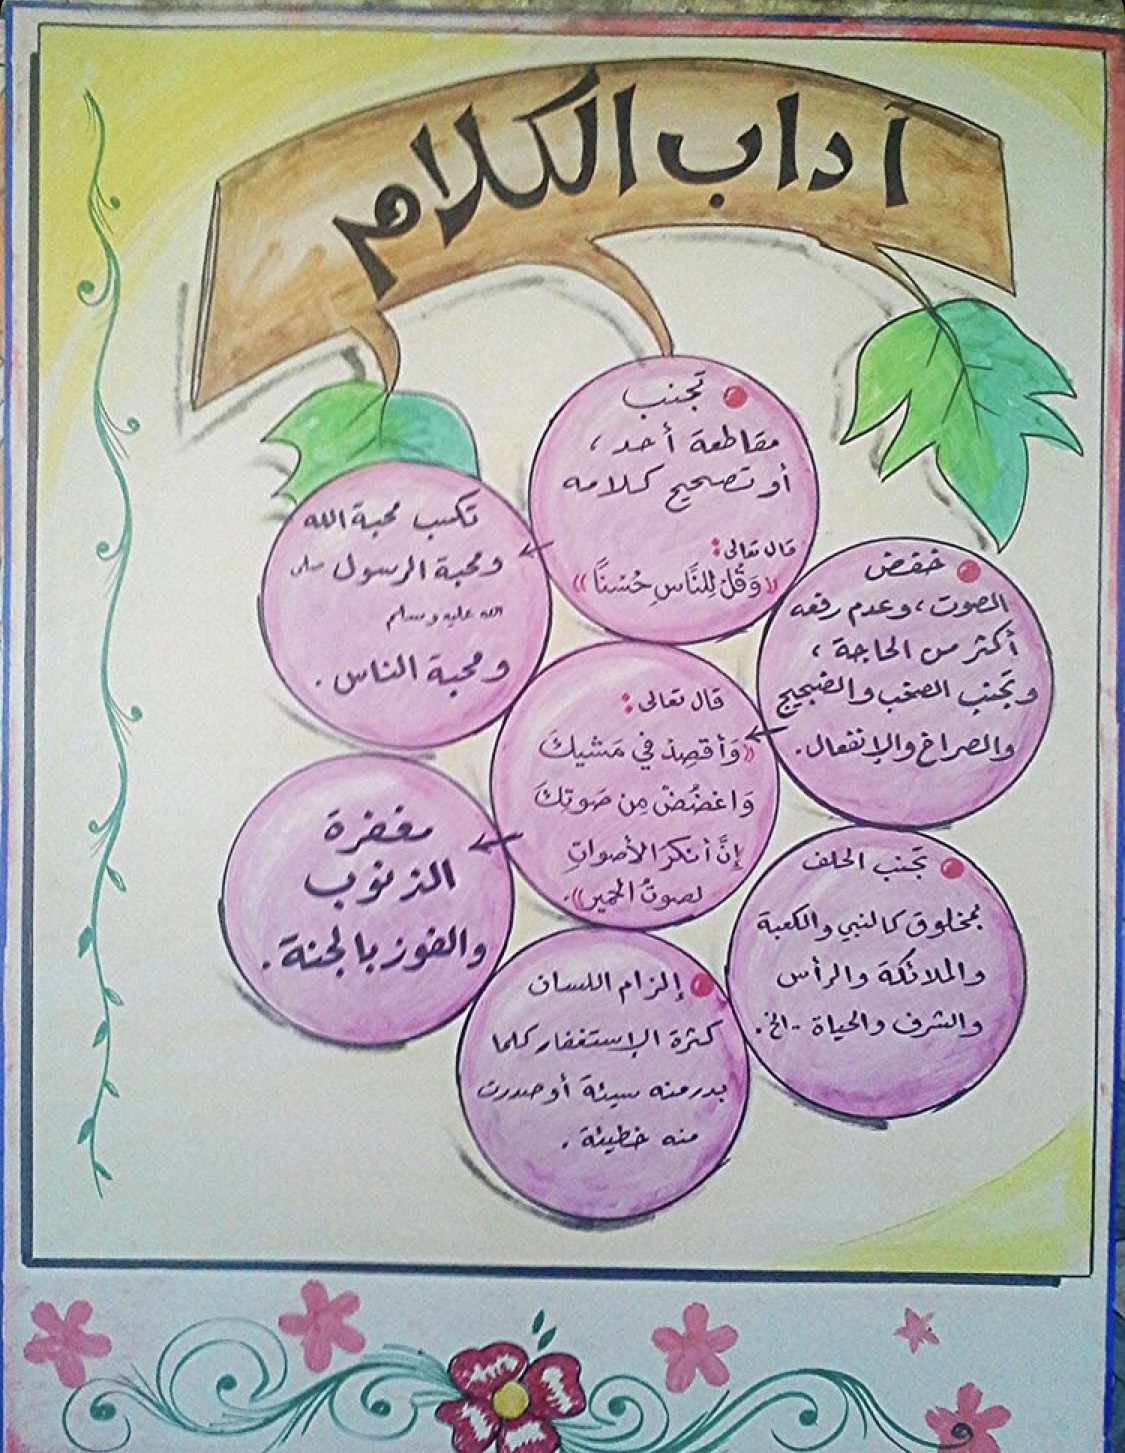 آداب الكلام
تجنب
مقاطعة أحد ،
أو تصحيح كلامه
قال تعالى :
« وَقُلْ لِلنَّاسِ حُسْنًا »
تكسب محبة الله
ومحبة الرسول صلى
الله عليه وسلم
ومحبة الناس .
خفض
الصوت ، وعدم رفعه
أكثر من الحاجة ،
وتجنب الصخب والضجيج
والصراخ والإنفعال .
قال تعالى :
« وَأقصِدْ في مَشيكَ
وَاغضُضْ مِن صَوتِكَ
إنَّ أنكرَ الأصواتِ
لصوتُ الحمير » .
مغفرة
الذنوب
والفوز بالجنة .
تجنب الحلف
بمخلوق كالنبي والكعبة
والملائكة والرأس
والشرف والحياة -الخ .
إلزام اللسان
كثرة الإستغفار كلما
بدر منه سيئة أو صدرت
منه خطيئة .